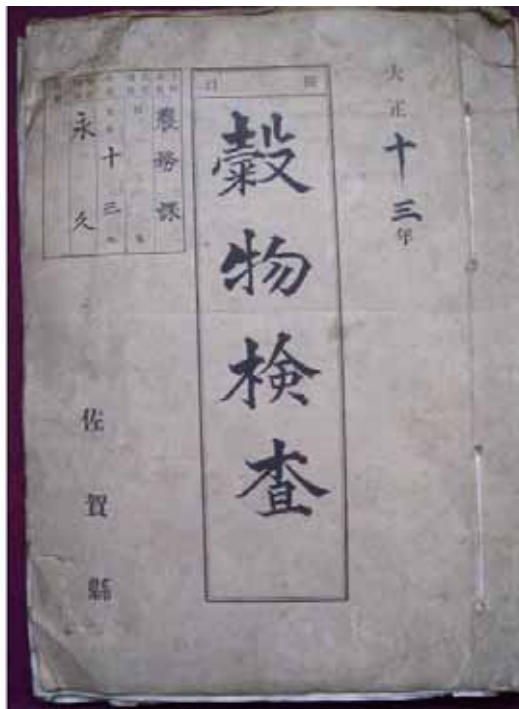 大正十三年
目
穀物検査
農務課
十三
永久
佐賀縣